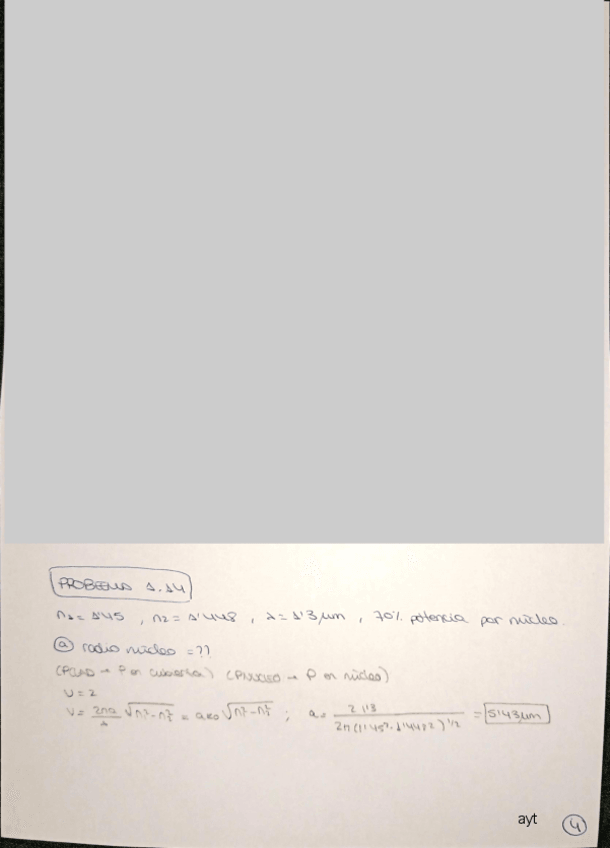 PROBLEMA 1.14
n1 = 1'45 , n2 = 1'448 , λ = 1'3 μm , 70% potencia por núcleo.
ⓐ radio núcleo = ??
(PCLAD → P en cubierta) (PNUCLEO → P en núcleo)
V = 2
V = 2πa/λ √n1²-n2² = a k0 √n1²-n2² ; a = 2 1'3 / 2π(1'45²-1'448²)^1/2 = 5'43 μm
ayt
4